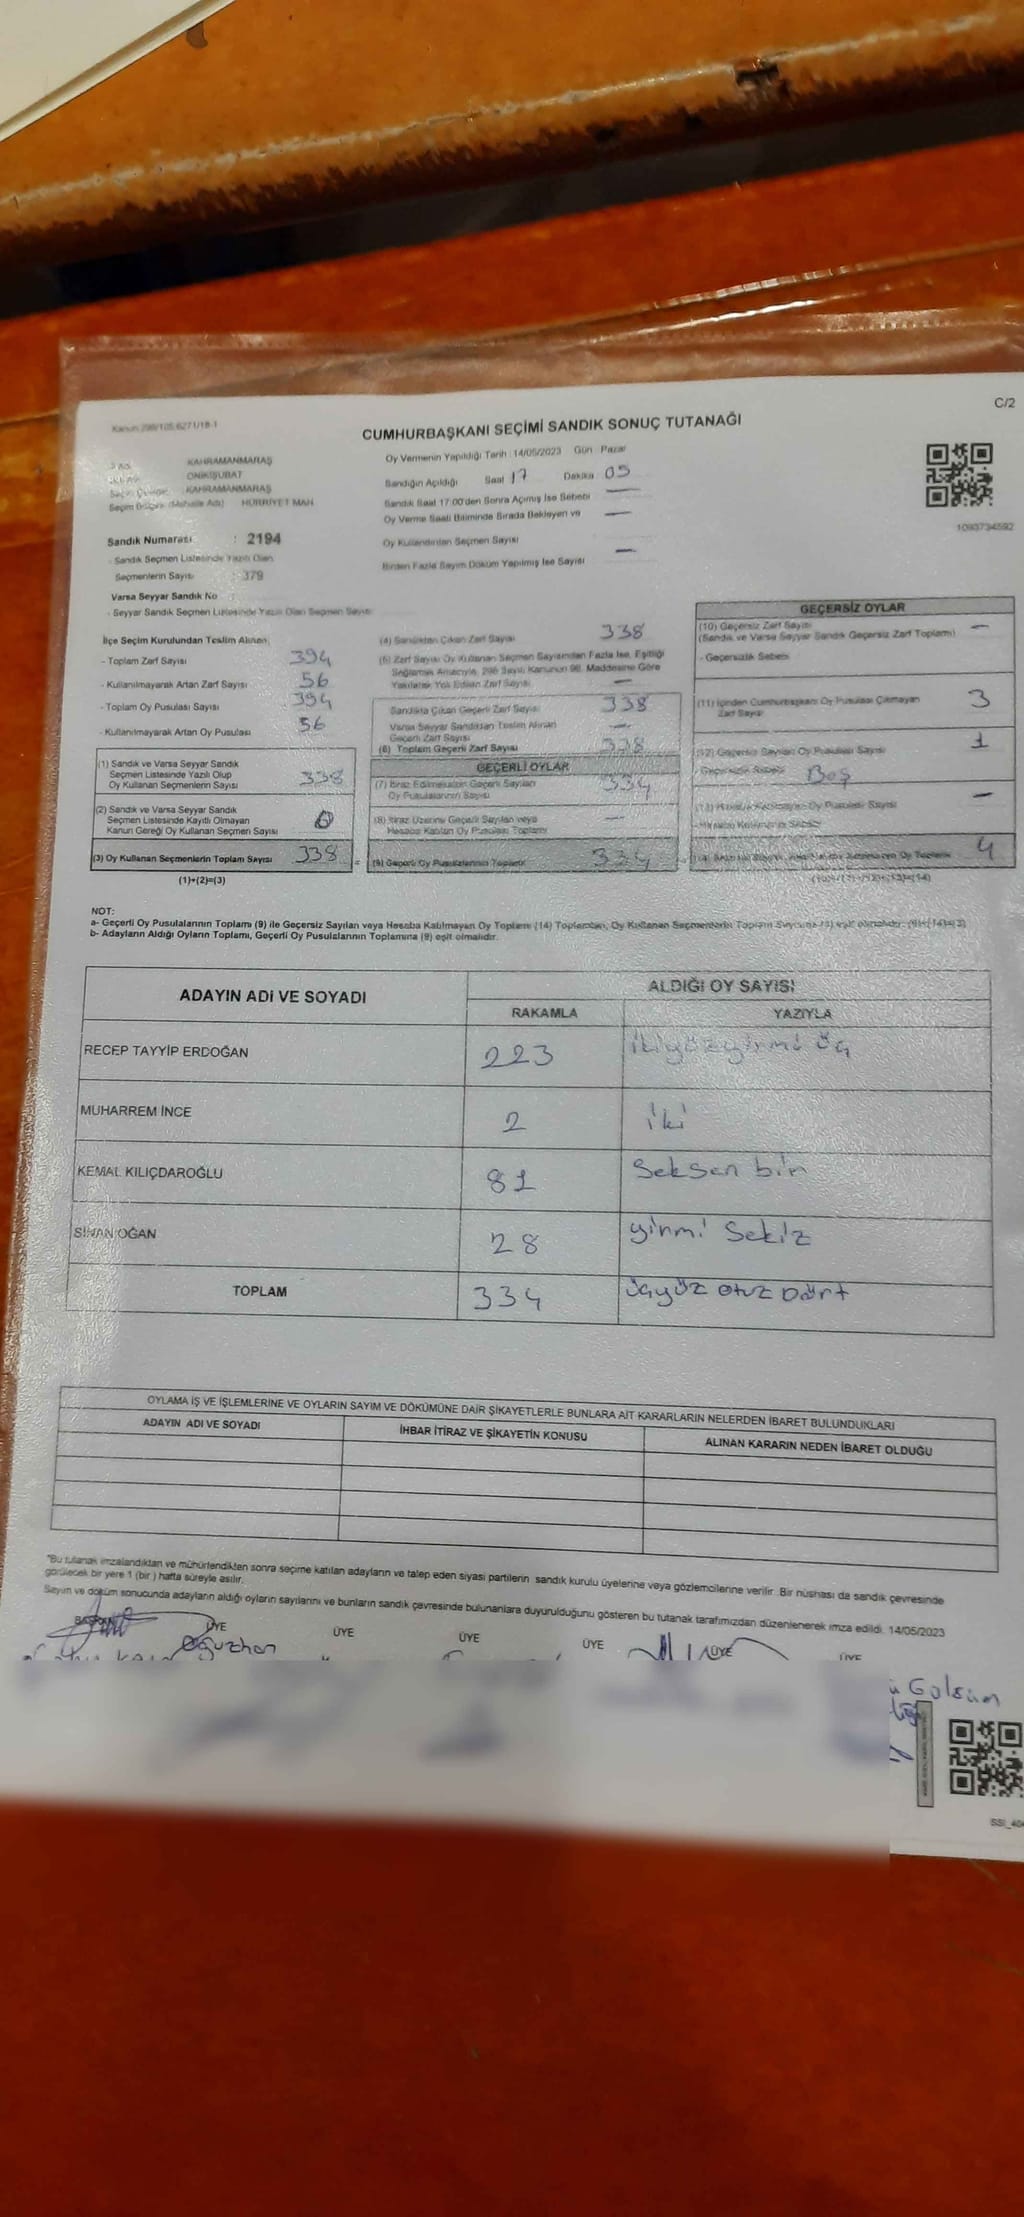 Kanun:298/105,6271/18-1
C/2
CUMHURBAŞKANI SEÇİMİ SANDIK SONUÇ TUTANAĞI
KAHRAMANMARAŞ
ONİKİŞUBAT
Seçim Çevresi: KAHRAMANMARAŞ
Seçim Bölgesi (Mahalle Adı) HÜRRİYET MAH.
Oy Vermenin Yapıldığı Tarih : 14/05/2023 Gün : Pazar
Sandığın Açıldığı Saat 17 Dakika 05
Sandık Saat 17:00'den Sonra Açımış İse Sebebi —
Oy Verme Saati Bitiminde Sırada Bekleyen ve —
Oy Kullandırılan Seçmen Sayısı
Birden Fazla Sayım Döküm Yapılmış İse Sayısı —
1093734592
Sandık Numarası : 2194
- Sandık Seçmen Listesinde Yazılı Olan
Seçmenlerin Sayısı : 379
Varsa Seyyar Sandık No
- Seyyar Sandık Seçmen Listesinde Yazılı Olan Seçmen Sayısı
İlçe Seçim Kurulundan Teslim Alınan;
- Toplam Zarf Sayısı 394
- Kullanılmayarak Artan Zarf Sayısı 56
- Toplam Oy Pusulası Sayısı 394
- Kullanılmayarak Artan Oy Pusulası 56
(1) Sandık ve Varsa Seyyar Sandık
Seçmen Listesinde Yazılı Olup
Oy Kullanan Seçmenlerin Sayısı 338
(2) Sandık ve Varsa Seyyar Sandık
Seçmen Listesinde Kayıtlı Olmayan
Kanun Gereği Oy Kullanan Seçmen Sayısı 0
(3) Oy Kullanan Seçmenlerin Toplam Sayısı 338
(1)+(2)=(3)
(4) Sandıktan Çıkan Zarf Sayısı 338
(5) Zarf Sayısı Oy Kullanan Seçmen Sayısından Fazla İse, Eşitliği
Sağlamak Amacıyla, 298 Sayılı Kanunun 98. Maddesine Göre
Yakılarak Yok Edilen Zarf Sayısı —
Sandıkta Çıkan Geçerli Zarf Sayısı 338
Varsa Seyyar Sandıktan Teslim Alınan
Geçerli Zarf Sayısı —
(6) Toplam Geçerli Zarf Sayısı 338
GEÇERLİ OYLAR
(7) İtiraz Edilmeksizin Geçerli Sayılan
Oy Pusulalarının Sayısı 334
(8) İtiraz Üzerine Geçerli Sayılan veya
Hesaba Katılan Oy Pusulası Toplamı —
(9) Geçerli Oy Pusulalarının Toplamı 334
GEÇERSİZ OYLAR
(10) Geçersiz Zarf Sayısı —
(Sandık ve Varsa Seyyar Sandık Geçersiz Zarf Toplamı)
- Geçersizlik Sebebi
(11) İçinden Cumhurbaşkanı Oy Pusulası Çıkmayan
Zarf Sayısı 3
(12) Geçersiz Sayılan Oy Pusulası Sayısı 1
- Geçersizlik Sebebi Boş
(13) Hesaba Katılmayan Oy Pusulası Sayısı —
4
NOT:
a- Geçerli Oy Pusulalarının Toplamı (9) ile Geçersiz Sayılan veya Hesaba Katılmayan Oy Toplamı (14) Toplamları, Oy Kullanan Seçmenlerin Toplam Sayısına (3) eşit olmalıdır. (9)+(14)=(3)
b- Adayların Aldığı Oyların Toplamı, Geçerli Oy Pusulalarının Toplamına (9) eşit olmalıdır.
ADAYIN ADI VE SOYADI
ALDIĞI OY SAYISI
RAKAMLA YAZIYLA
RECEP TAYYİP ERDOĞAN 223 ikiyüzyirmi üç
MUHARREM İNCE 2 iki
KEMAL KILIÇDAROĞLU 81 Seksen bir
SİNAN OĞAN 28 yirmi Sekiz
TOPLAM 334 üçyüz otuz Dört
OYLAMA İŞ VE İŞLEMLERİNE VE OYLARIN SAYIM VE DÖKÜMÜNE DAİR ŞİKAYETLERLE BUNLARA AİT KARARLARIN NELERDEN İBARET BULUNDUKLARI
ADAYIN ADI VE SOYADI İHBAR İTİRAZ VE ŞİKAYETİN KONUSU ALINAN KARARIN NEDEN İBARET OLDUĞU
"Bu tutanak imzalandıktan ve mühürlendikten sonra seçime katılan adayların ve talep eden siyasi partilerin sandık kurulu üyelerine veya gözlemcilerine verilir. Bir nüshası da sandık çevresinde
görülecek bir yere 1 (bir ) hafta süreyle asılır.
Sayım ve döküm sonucunda adayların aldığı oyların sayılarını ve bunların sandık çevresinde bulunanlara duyurulduğunu gösteren bu tutanak tarafımızdan düzenlenerek imza edildi. 14/05/2023
BAŞKAN ÜYE ÜYE ÜYE ÜYE ÜYE ÜYE
Oğuzhan
Gülsüm